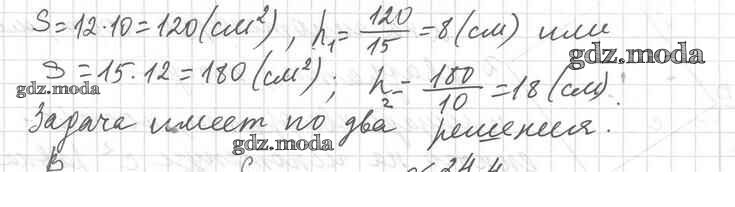 S = 12 · 10 = 120 (см²), h₁ = 120/15 = 8 (см) или
gdz.moda
S = 15 · 12 = 180 (см²); h₂ = 180/10 = 18 (см).
gdz.moda
Задача имеет по два решения.
gdz.moda